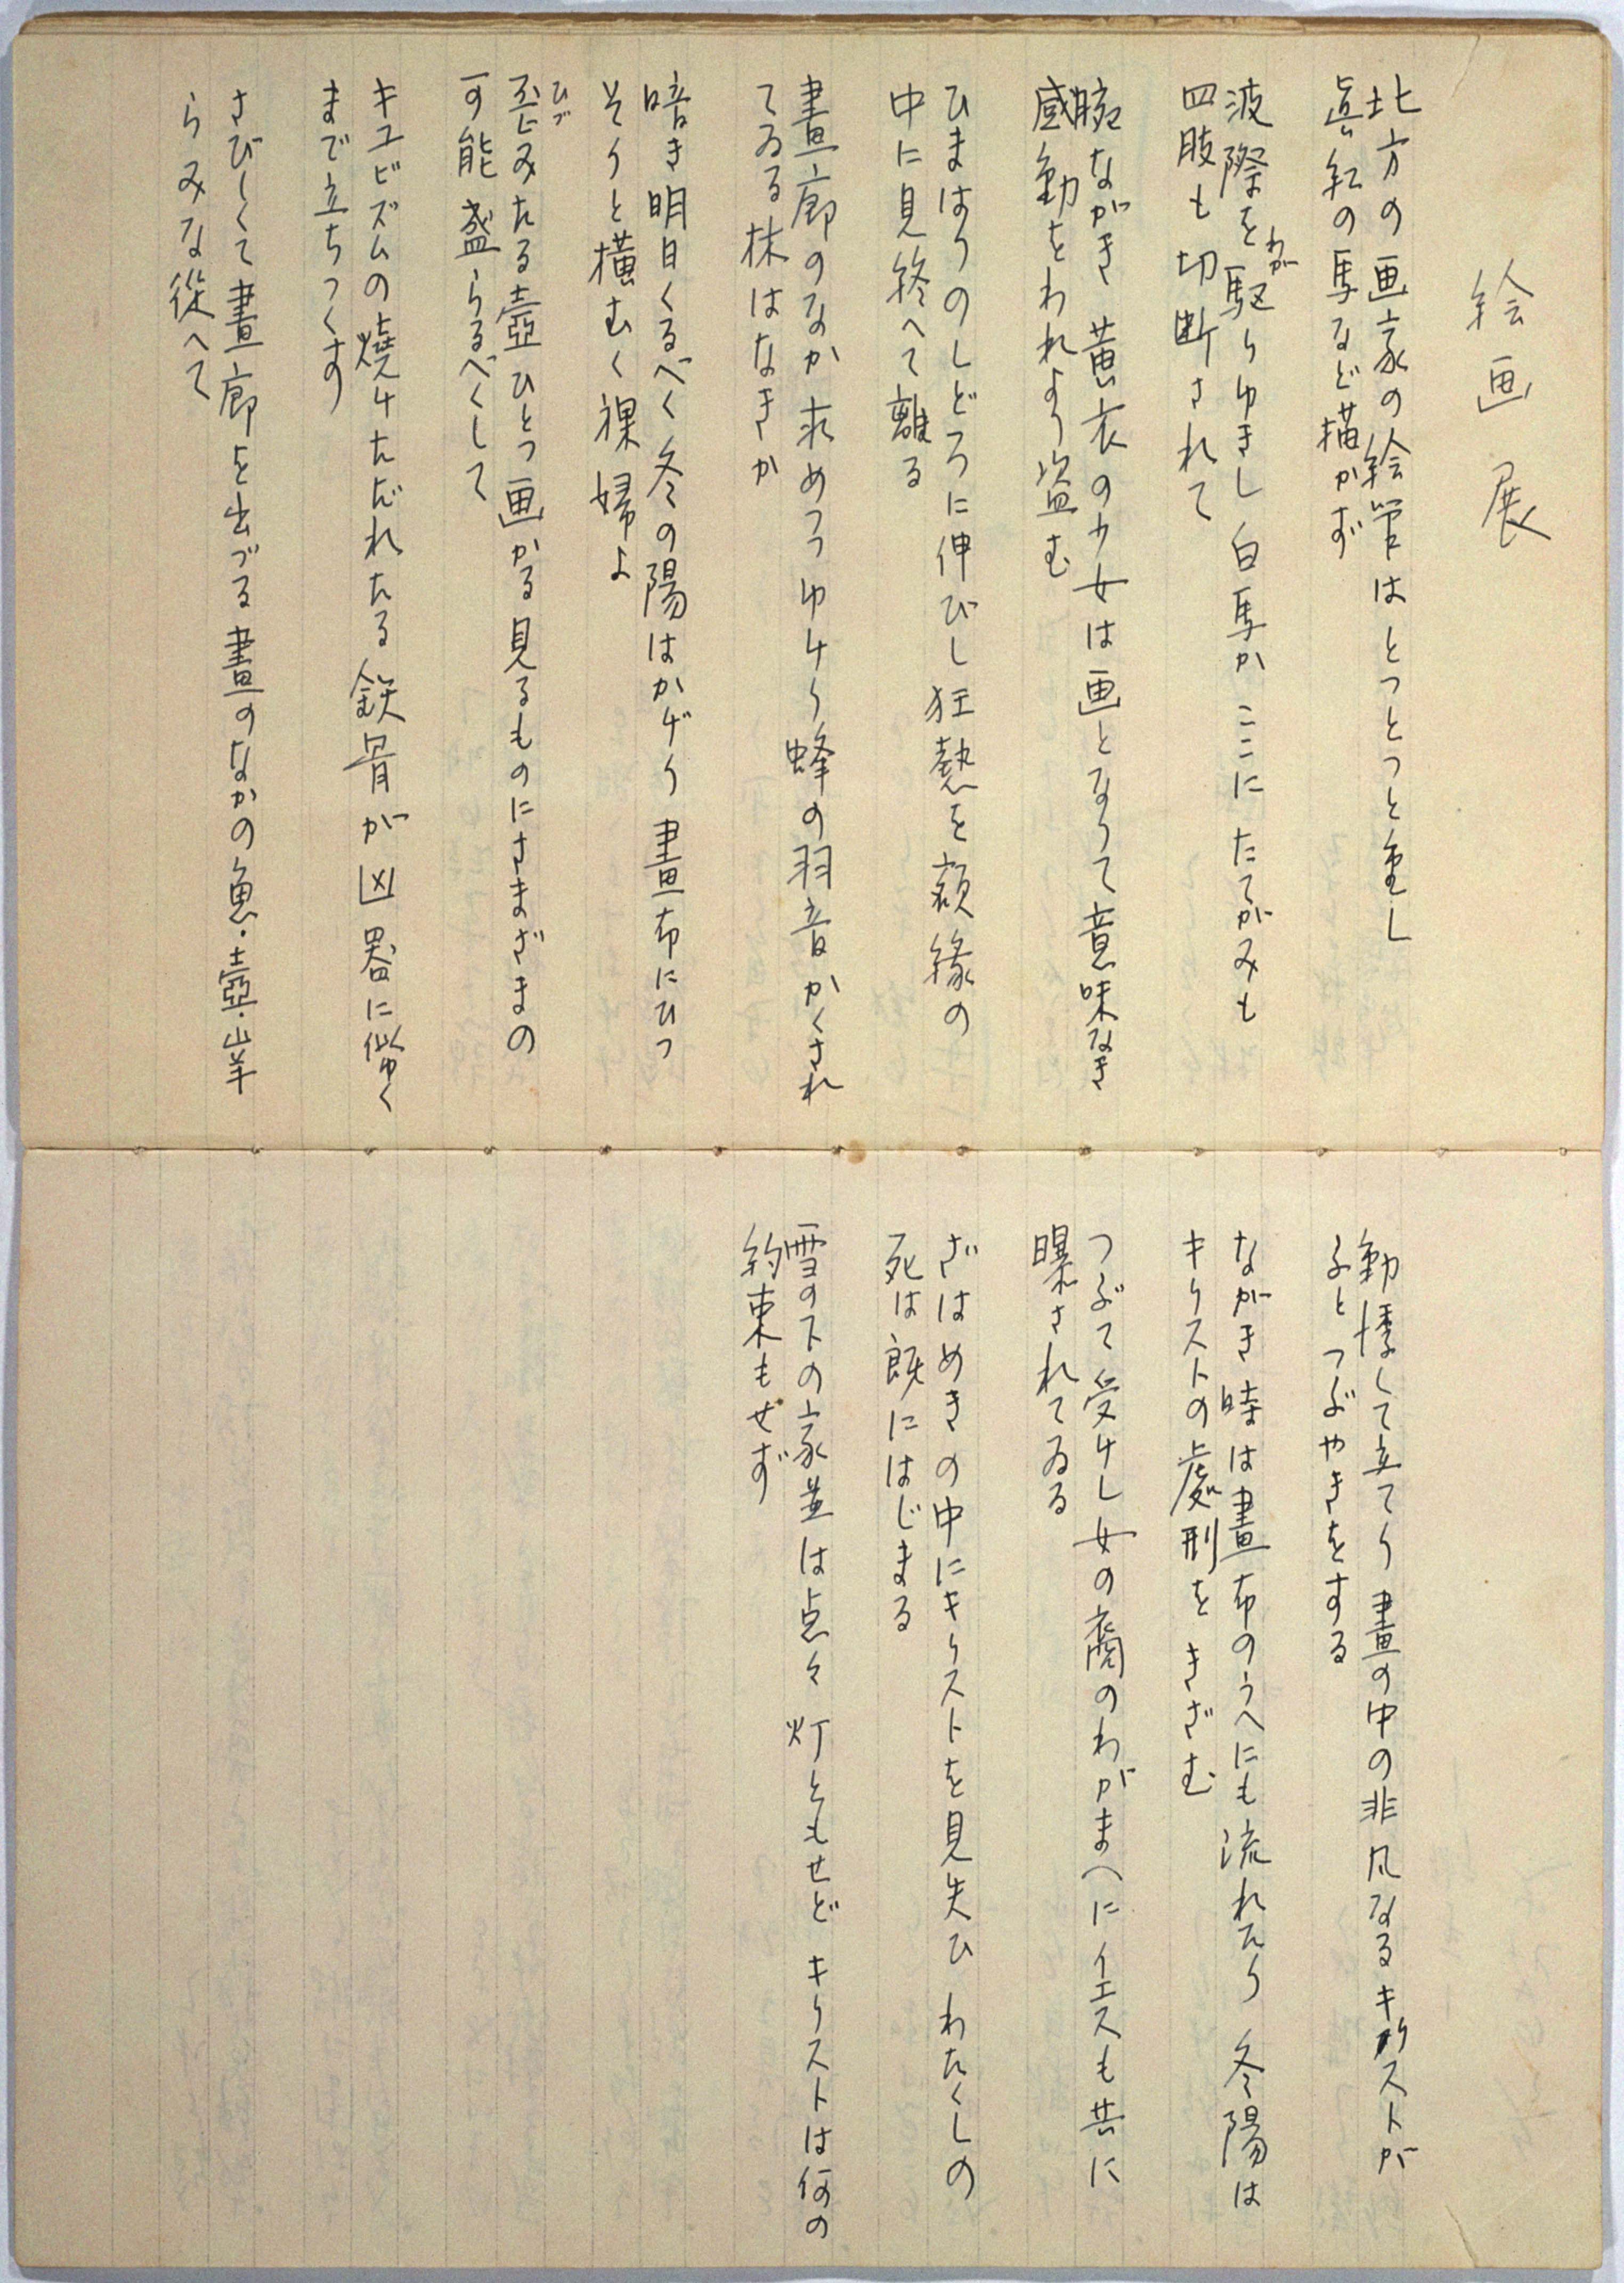 絵画展
北方の画家の絵管はとつとつと重し
眞紅の馬など描かず
波際をわが駆りゆきし白馬か ここに たてがみも
四肢も切断されて
腕ながき黄衣の少女は画となりて意味なき
感動をわれより盗む
ひまはりのしどろに伸びし狂熱を額縁の
中に見終へて離る
晝廊のなか求めつつゆけり蜂の羽音かくされ
てゐる抹はなきか
暗き明日くるべく冬の陽はかげり 畫布にひつ
そりと横むく裸婦よ
歪みたる壺ひとつ画かる見るものにさまざまの
ひづ
可能盛らるべくして
キユビズムの焼けたゞれたる鉄骨が凶器に働く
まで立ちつくす
さびしくて畫廊を出づる畫のなかの魚・壺・山羊
らみな従へて
動悸して立てり畫の中の非凡なるキリストが
ふとつぶやきをする
ながき時は畫布のうへにも流れたり 冬陽は
キリストの處刑をきざむ
つぶて受けし女の裔のわがまへにイエスも共に
曝されてゐる
ざはめきの中にキリストを見失ひ わたくしの
死は既にはじまる
雪の下の家並は点々 灯ともせど キリストは何の
約束もせず